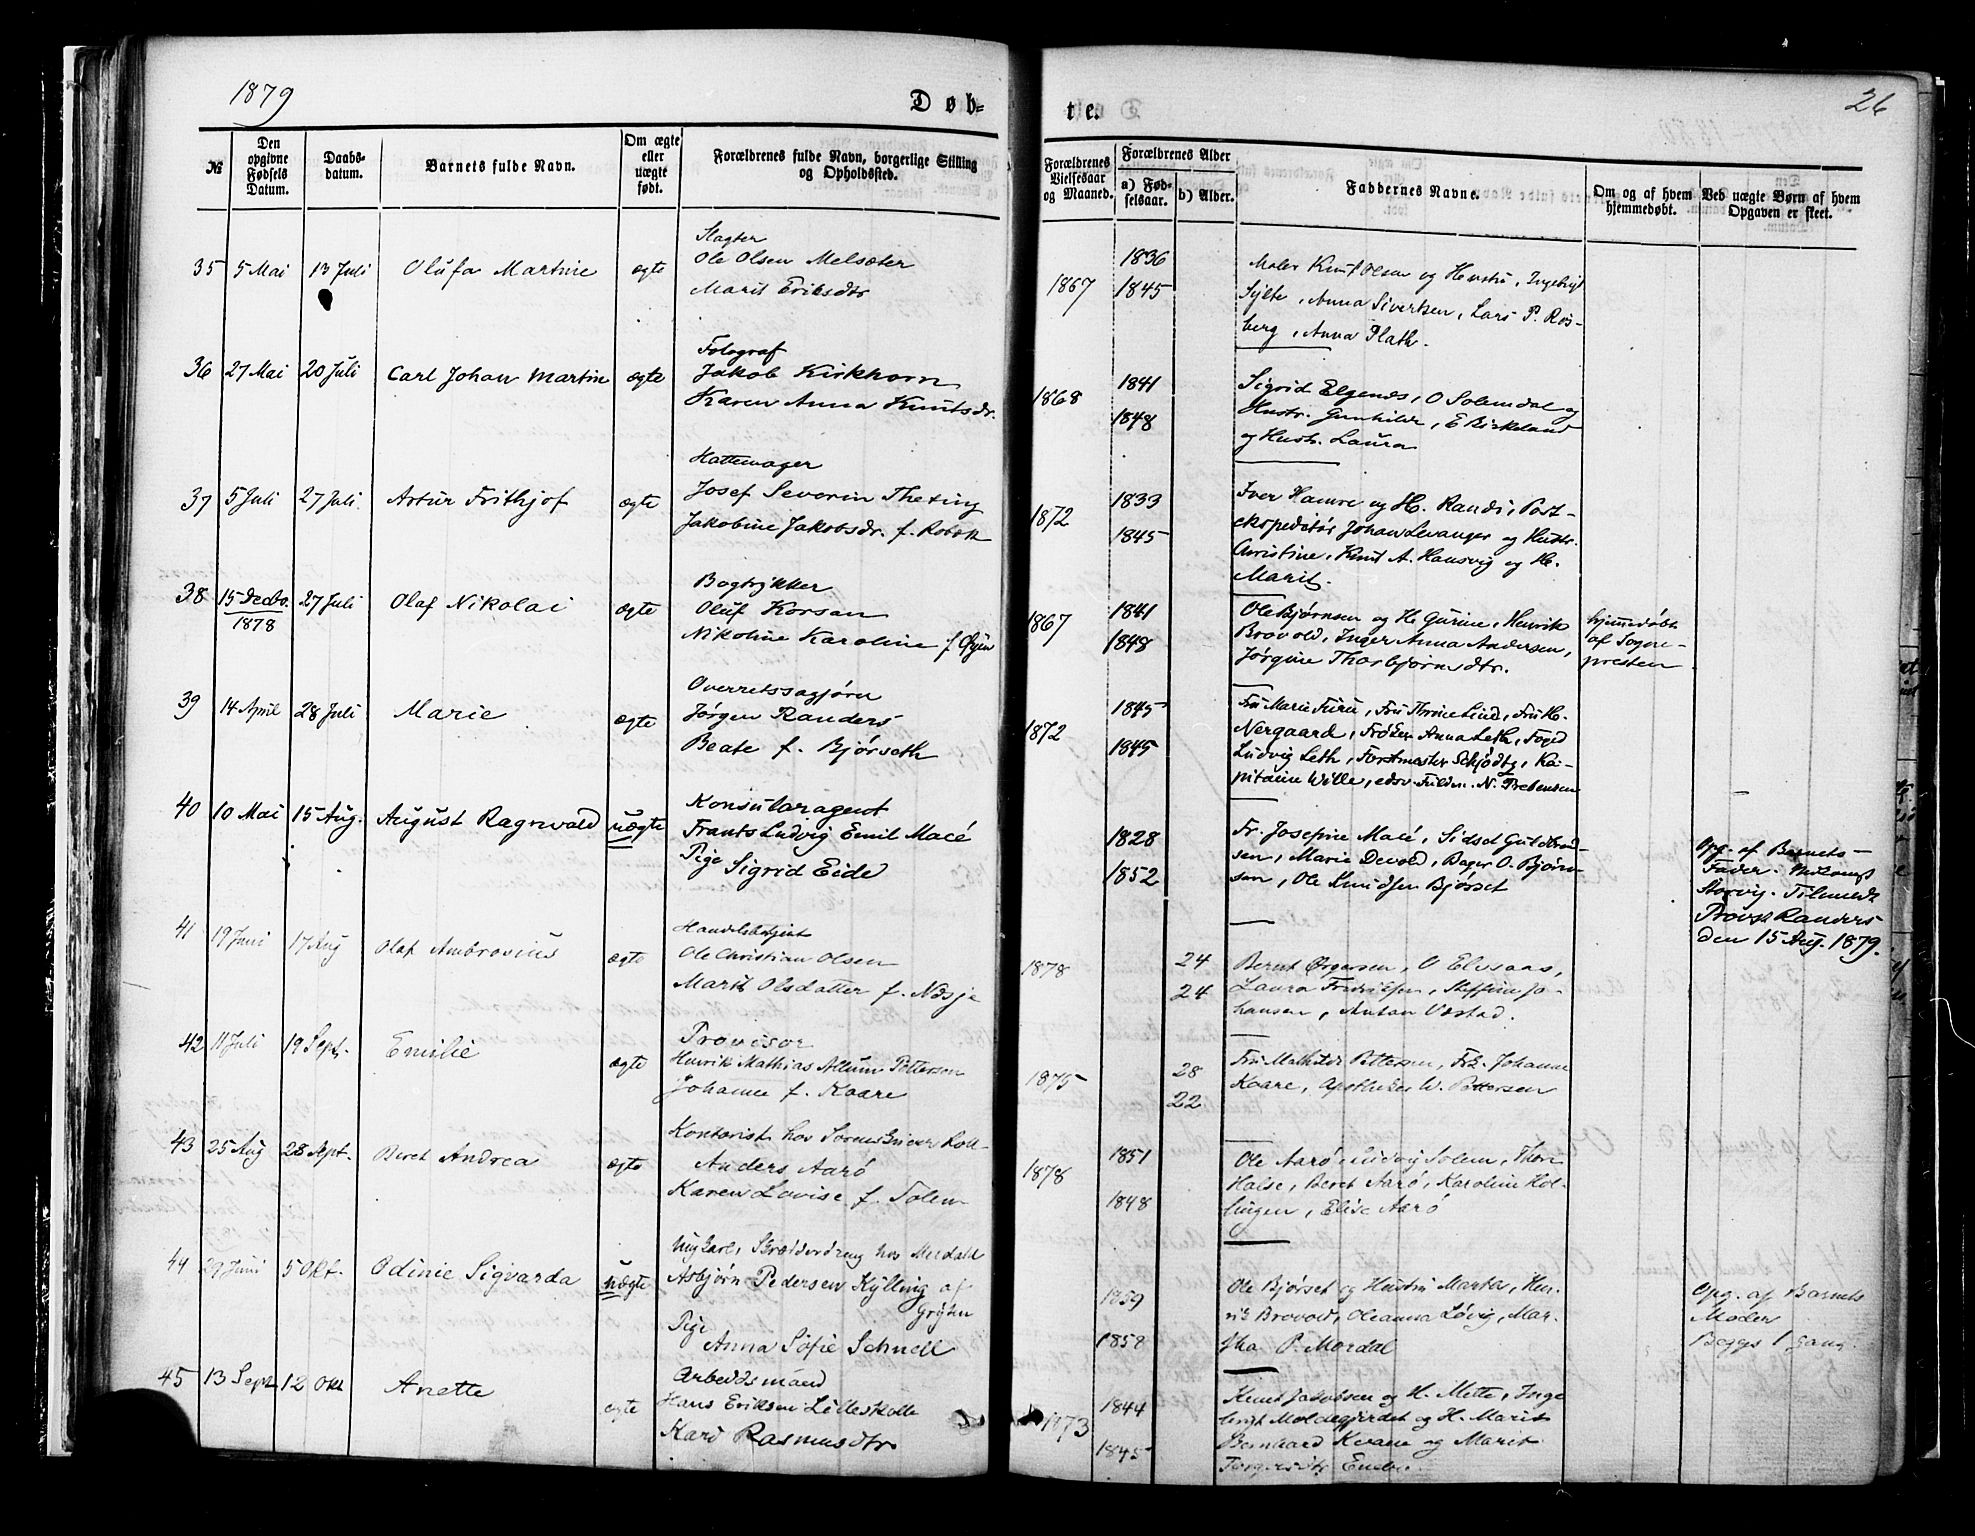 1879
Døb=
te.
26
№
Den opgivne Fødsels Datum.
Daabs-datum.
Barnets fulde Navn.
Om ægte eller uægte født.
Forældrenes fulde Navn, borgerlige Stilling og Opholdssted.
Forældrenes Vielsesaar og Maaned.
Forældrenes Alder
a) Fødselsaar.
b) Alder.
Faddernes Navne.
Om og af hvem hjemmedøbt.
Ved uægte Børn af hvem Opgaven er skeet.
35 5 Mai 13 Juli Olufa Martine ægte
Slagter
Ole Olsen Melsæter
Marit Eriksdtr
1867 1836 1845
Maler Knut Olsen og Hustru, Ingebrigt
Sylte, Anna Sivertsen, Lars P. Ros-
berg, Anna Flath.
36 27 Mai 20 Juli Carl Johan Martin ægte
Fotograf
Jakob Kirkhorn
Karen Anna Knutsdr.
1868 1841 1848
Sigrid Elgenes, O Solemdal og
Hustr. Gunhilde, E Birkeland
og Hustr. Laura
37 5 Juli 27 Juli Artur Frithjof ægte
Hattemager
Josef Severin Theting
Jakobine Jakobsdr. f. Robæk
1872 1833 1845
Iver Hamre og H. Randi, Post-
ekspeditør Johan Levanger og Hustr.
Christine, Knut A. Hansvig og H.
Marit.
38 15 Decbr. 1878 27 Juli Olaf Nikolai ægte
Bogtrykker
Oluf Korsan
Nikoline Karoline f. Øyen
1867 1841 1848
Ole Bjørnsen og H. Gurine, Henrik
Brovold, Inger Anna Andersen,
Jørgine Thorbjørnsdtr.
hjemmedøbt
af Sogne-
presten
39 14 April 28 Juli Marie ægte
Overretssagførn
Jørgen Randers
Beate f. Bjørseth
1872 1845 1845
Fru Marie Furu, Fru Thrine Lind, Fru H.
Nergaard, Frøken Anna Leth, Foged
Ludvig Leth, Forstmester Schjødtz, Ka-
pitaine Wille, N. Prebensen
40 10 Mai 15 Aug. August Ragnvald uægte
Konsularagent
Frants Ludvig Emil Macé
Pige Sigrid Eide
1828 1852
Fr. Josefine Macé, Sidsel Guldbrand-
sen, Marie Devold, Bager O. Bjørn-
sen, Ole Knudsen Bjørset
Opg. af Barnets
Fader.
Storvig. Tilmeldt
Provst Randers
den 15 Aug. 1879.
41 19 Juni 17 Aug Olaf Ambrosius ægte
Handelsbetjent
Ole Christian Olsen
Marit Olsdatter f. Nesje
1878 24 24
Bernt Ørgersen, O Elvsaas,
Laura Fredriksen, Steffine Jo-
hansen, Anton Vestad.
42 11 Juli 19 Sept. Emilie ægte
Provisor
Henrik Mathias Allum Pettersen
Johanne f. Kaare
1875 28 22
Fru Mathilde Pettersen, Frk. Johanne
Kaare, Apotheker W. Pettersen
43 25 Aug 28 Sept. Beret Andrea ægte
Kontorist hos Sorenskriver
Anders Aarø
Karen Lovise f. Solem
1878 1851 1848
Ole Aarø, Ludvig Solem, Thore
Halse, Beret Aarø, Karoline Hol-
lingen, Elise Aarø
44 29 Juni 5 Okt. Odinie Sigvarda uægte
Ungkarl, Skrædderdreng hos Merdahl
Asbjørn Pedersen Kylling af
Grytten
Pige
Anna Sofie Schnell
1859 1858
Ole Bjørset og Hustru Marta, Hen-
rik Brovold, Oleanna Løvig, Mar-
tha P. Mordal
Opg. af Barnets
Moder
Begges 1 gang.
45 13 Sept. 12 Okt Anette ægte
Arbeidsmand
Hans Eriksen Lilleskolte
Kari Rasmusdtr
1873 1844 1845
Knut Jakobsen og H. Mette, Inge
brigt Moldegjerdet og H. Marit
Bernhard Kvane og Marit